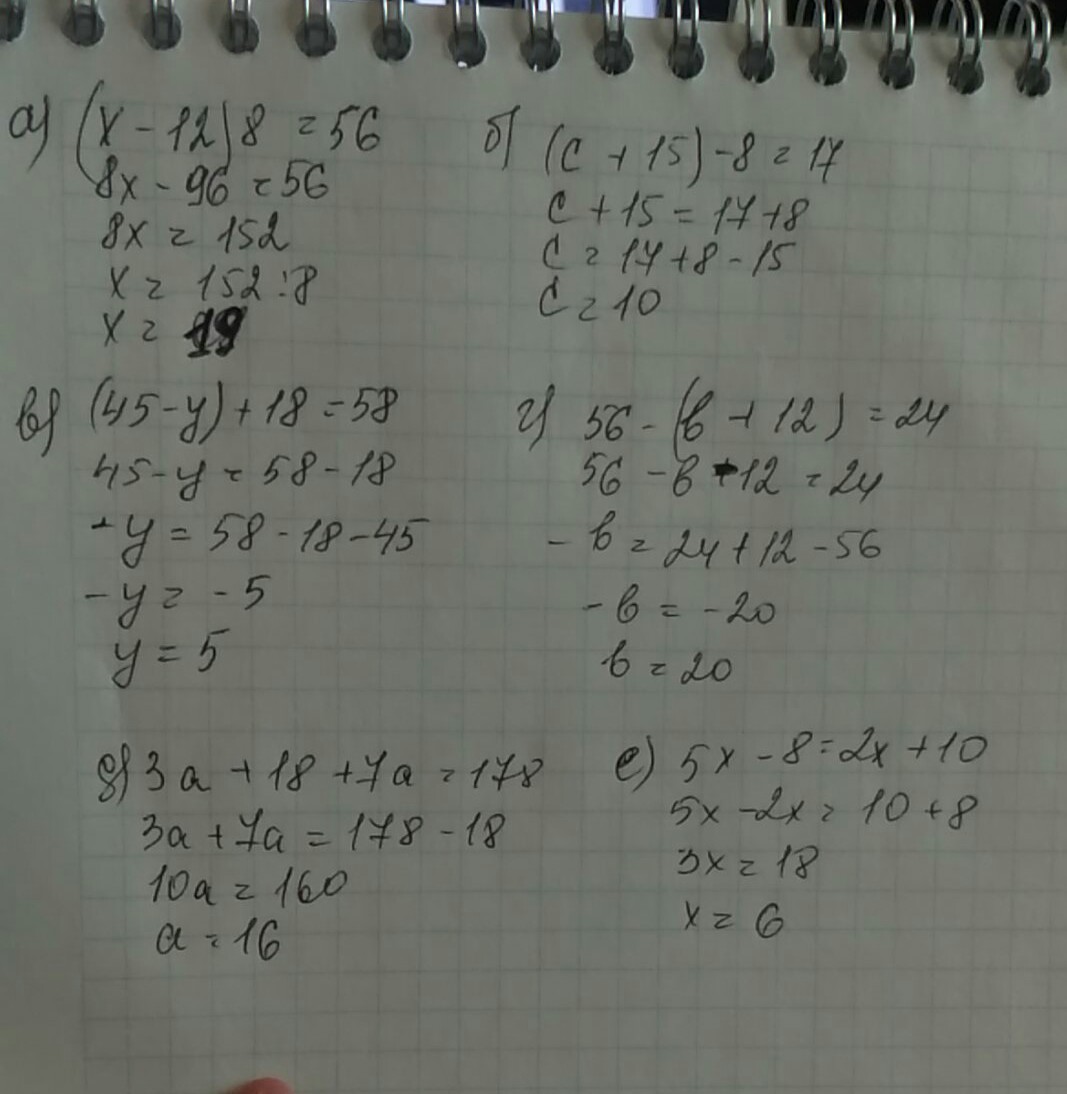 а) (x - 12)8 = 56
8x - 96 = 56
8x = 152
x = 152:8
x = 19
б) (c + 15) - 8 = 17
c + 15 = 17 + 8
c = 17 + 8 - 15
c = 10
в) (45 - y) + 18 = 58
45 - y = 58 - 18
- y = 58 - 18 - 45
- y = - 5
y = 5
г) 56 - (в + 12) = 24
56 - в - 12 = 24
- в = 24 + 12 - 56
- в = -20
в = 20
д) 3a + 18 + 7a = 178
3a + 7a = 178 - 18
10a = 160
a = 16
е) 5x - 8 = 2x + 10
5x - 2x = 10 + 8
3x = 18
x = 6